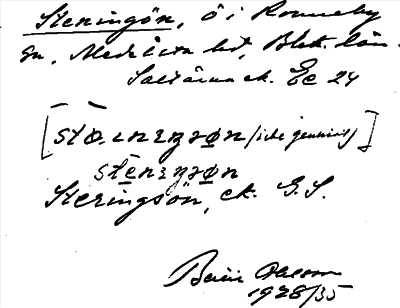 Steningön, ö i Ronneby
sn, Medelsta hd, Blek. län.
Saltärna ek. Ec 24
[stø̄.ınınzøn (icke genuint)]
stēnıŋzøn
Steringsön, ek. G.S.
Olsson
1928/35